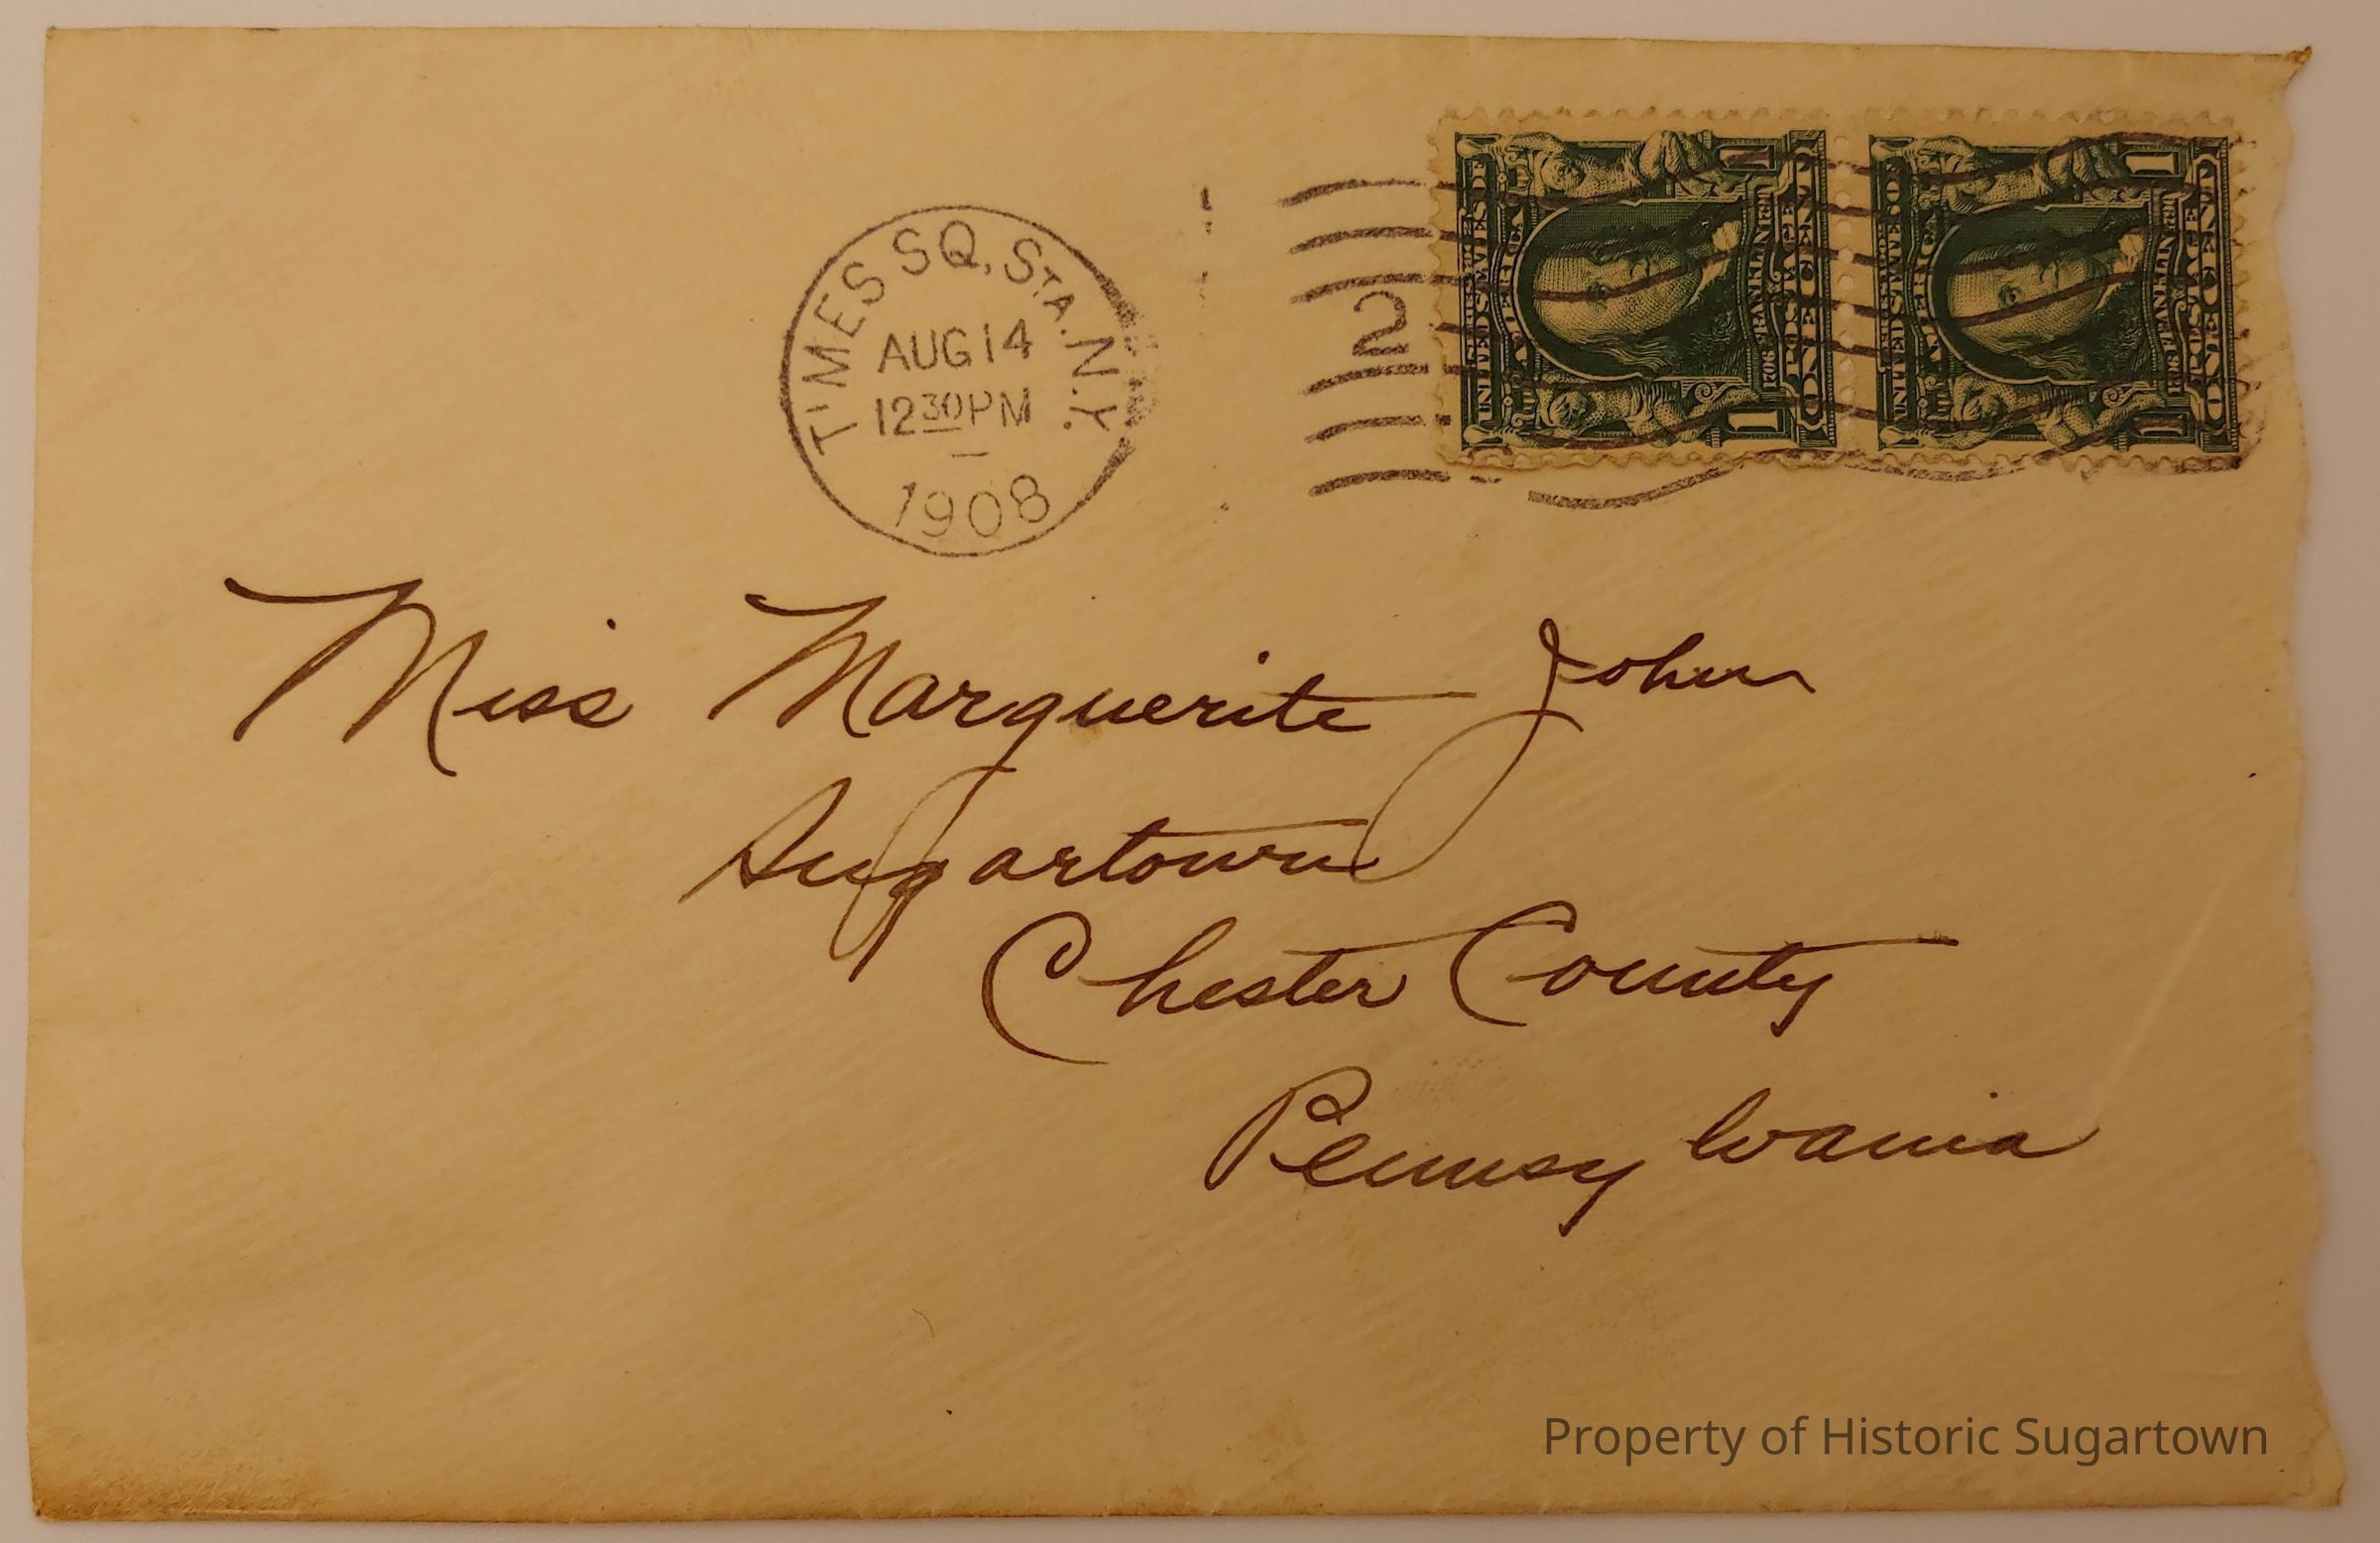 TIMES SQ. STA. N.Y.
AUG 14
12 30 PM
1908
2
SERIES 1902
UNITED STATES OF AMERICA
1706 FRANKLIN 1790
POSTAGE
1 ONE CENT 1
SERIES 1902
UNITED STATES OF AMERICA
1706 FRANKLIN 1790
POSTAGE
1 ONE CENT 1
Miss Marguerite John
Sugartown
Chester County
Pennsylvania
Property of Historic Sugartown